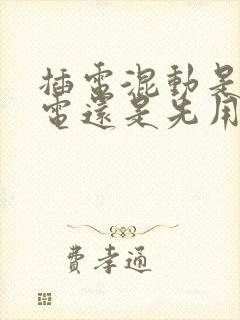 插電混動是
電還是先用
費孝通